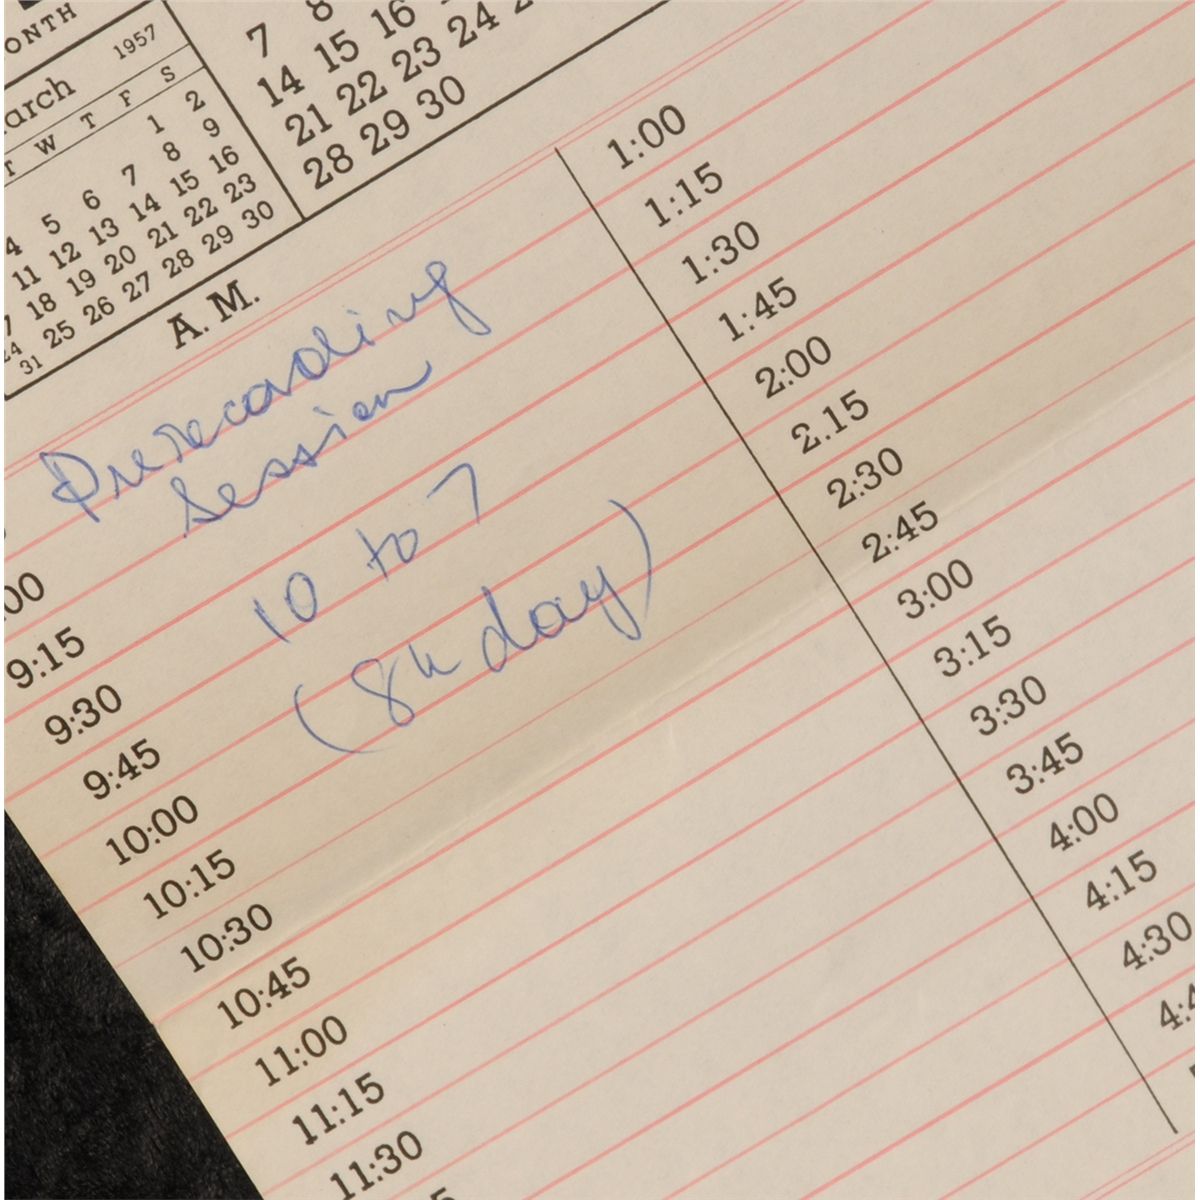 ONTH
arch 1957
T W T F S
1 2
4 5 6 7 8 9
11 12 13 14 15 16
7 18 19 20 21 22 23
24 25 26 27 28 29 30
31
7 8
14 15 16
21 22 23 24 2
28 29 30
A. M.
Prerecording
session
10 to 7
(8h day)
00
9:15
9:30
9:45
10:00
10:15
10:30
10:45
11:00
11:15
11:30
1:00
1:15
1:30
1:45
2:00
2.15
2:30
2:45
3:00
3:15
3:30
3:45
4:00
4:15
4:30
4:4